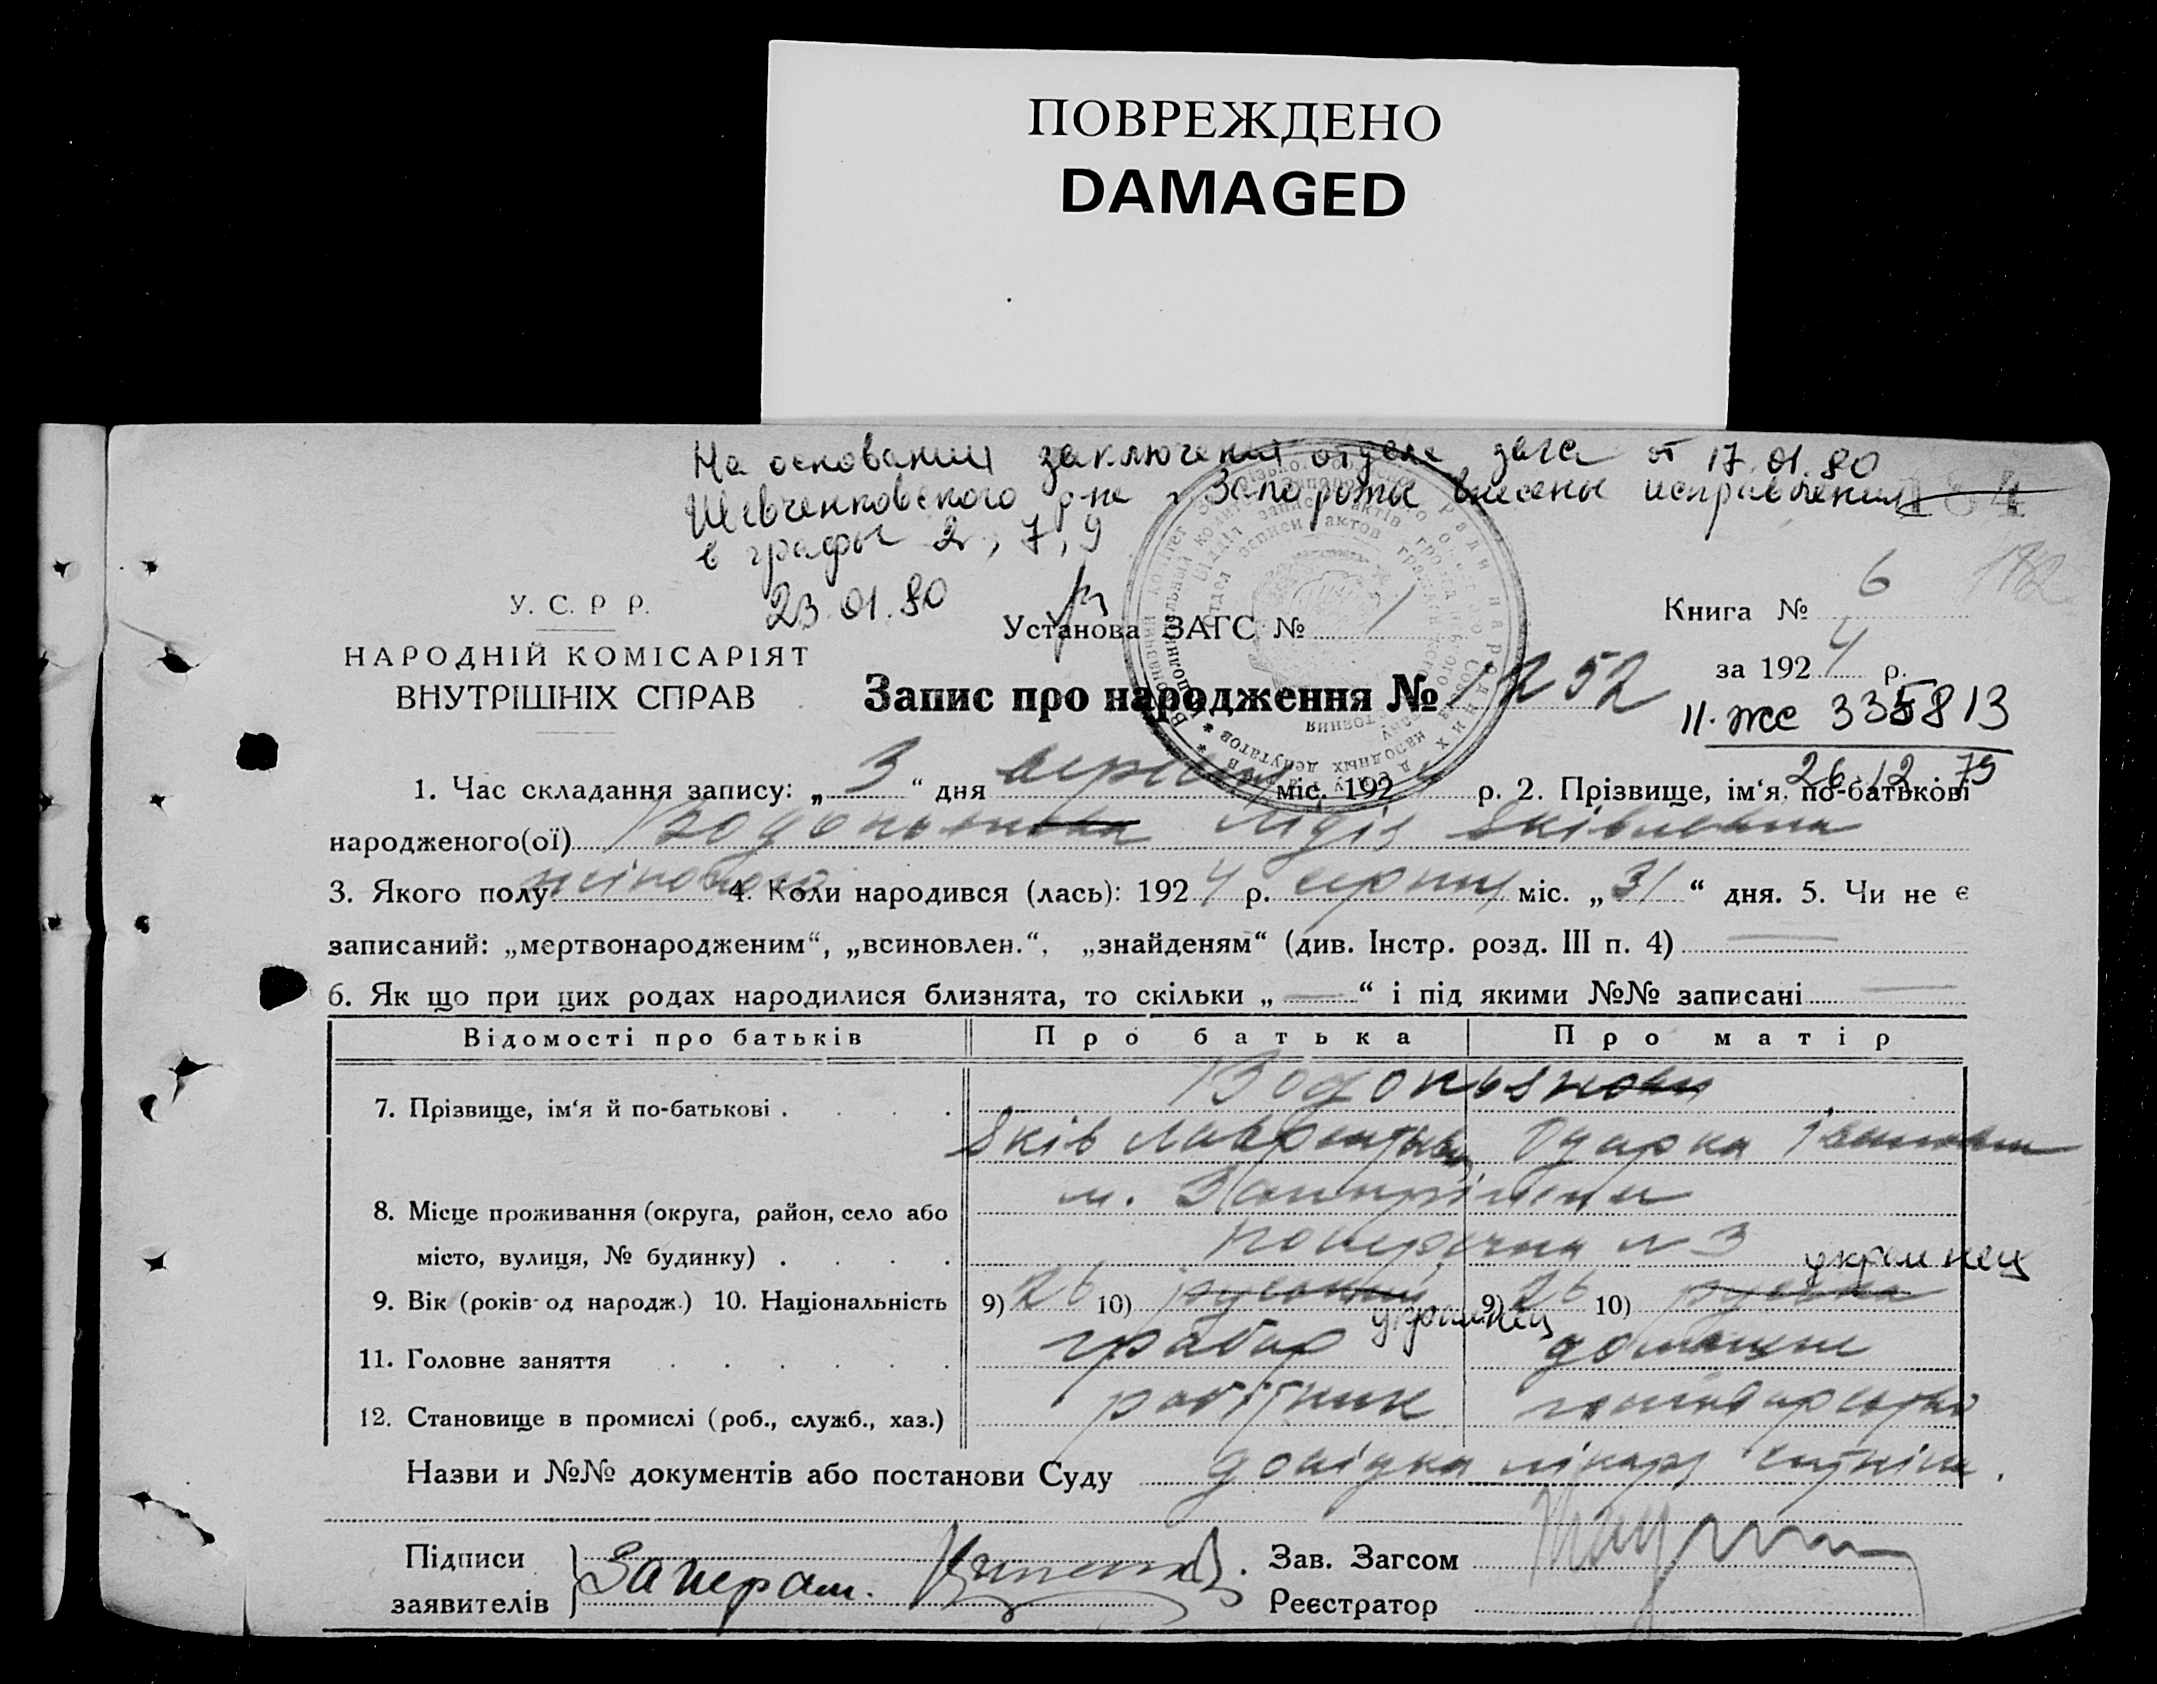 ПОВРЕЖДЕНО
DAMAGED
На основании заключения отдела загса от 17.01.80
Шевченковского р-на г. Запорожья внесены исправления
в графы 2, 7, 9
23.01.80
184
182
У. С. Р Р.
НАРОДНІЙ КОМІСАРІЯТ
ВНУТРІШНІХ СПРАВ
Установа ЗАГС № 1
Книга № 6
за 1924 р.
Запис про народження № 1252
II-же 335813
26.12.79
1. Час складання запису: „3“ дня вересня міс. 1924 р. 2. Прізвище, ім‘я, по-батькові
народженого(ої) Лідія Яківлевна
3. Якого полу жіночого 4. Коли народився (лась): 1924 р. серпня міс. „31“ дня. 5. Чи не є
записаний: „мертвонародженим“, „всиновлен.“, „знайденям“ (див. Інстр. розд. III п. 4) —
6. Як що при цих родах народилися близнята, то скільки „—“ і під якими №№ записані —
Відомості про батьків Про батька Про матір
7. Прізвище, ім‘я й по-батькові . . . . Водопьянови
Яків Лаврентьев Одарка Івановна
8. Місце проживання (округа, район, село або м. Запоріжжя
місто, вулиця, № будинку) . . . . Поперечна № 3
украинец
9. Вік (років од народж.) 10. Національність 9) 26 10) руський 9) 26 10) руська
украинец
11. Головне заняття . . . . . . грабар домашне
12. Становище в промислі (роб., служб., хаз.) робітник господарство
Назви и №№ документів або постанови Суду довідка лікаря
Підписи
заявителів
Зав. Загсом
Реєстратор